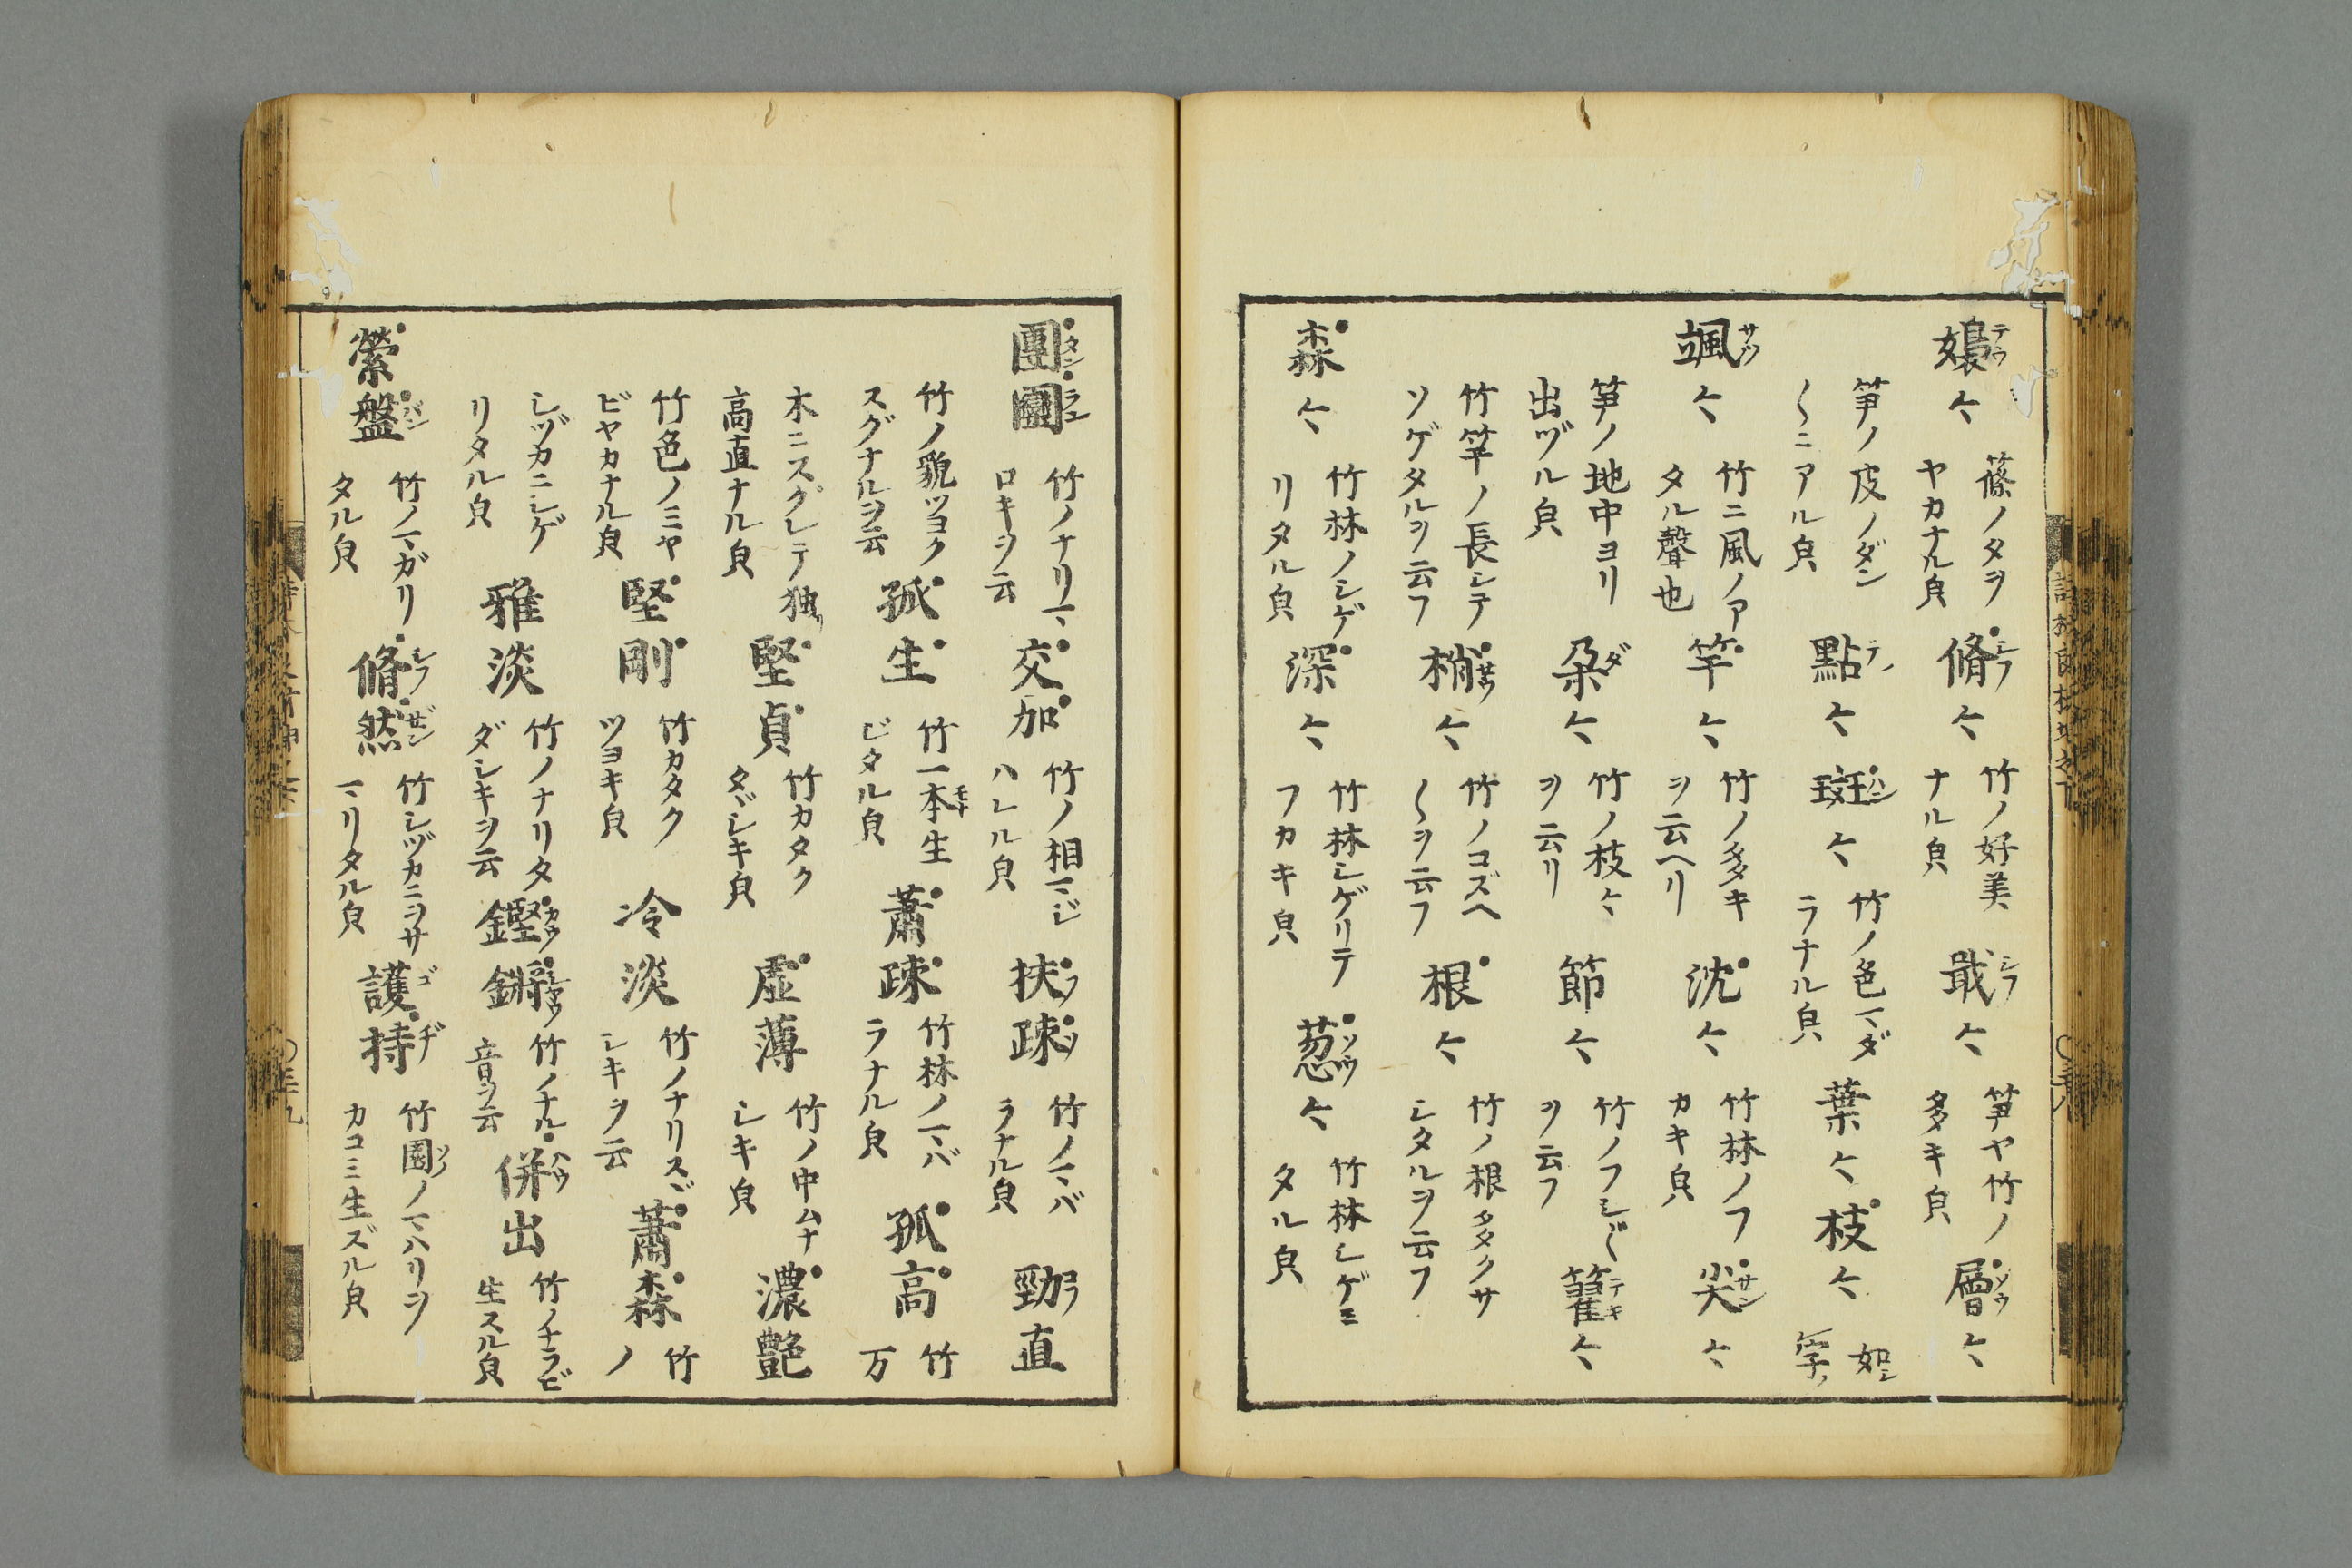 嬝テウ々 篠ノタヲヤカナル皃 脩シフ々 竹ノ好美ナル皃 戢シフ々 笋ヤ竹ノ多キ皃 層ソウ々
笋ノ皮ノダン〳〵ニアル皃 點テン々 斑ハン々 竹ノ色マダラナル皃 葉々 枝々 如シ字ノ
颯サツ々 竹ニ風ノアタル聲也 竿々 竹ノ多キヲ云ヘリ 沈々 竹林ノフカキ皃 尖サン々
笋ノ地中ヨリ出ヅル皃 朶ダ々 竹ノ枝々ヲ云リ 節々 竹ノフシ〴〵ヲ云フ 籊テキ々
竹竿ノ長シテソゲタルヲ云フ 梢サウ々 竹ノコズヘ〳〵ヲ云フ 根々 竹ノ根多クサシタルヲ云フ
森々 竹林ノシゲリタル皃 深々 竹林シゲリテフカキ皃 葱ソウ々 竹林シゲミタル皃
團タン圞ラン 竹ノナリマロキヲ云 交加 竹ノ相マジハレル皃 扶フ疎ソ 竹ノマバラナル皃 勁直
竹ノ貌ツヨクスグナルヲ云 孤生 竹一本生ビタル皃 蕭疎 竹林ノマバラナル皃 孤高 竹万
木ニスグレテ独リ高直ナル皃 堅貞 竹カタクタヾシキ皃 虚薄 竹ノ中ムナシキ皃 濃艶
竹色ノミヤビヤカナル皃 堅剛 竹カタクツヨキ皃 冷淡 竹ノナリスヾシキヲ云 蕭森 竹ノ
シヅカニシゲリタル皃 雅淡 竹ノナリタダシキヲ云 鏗カウ鏘シヤウ 竹ノナル音ヲ云 併ヘウ出 竹ノナラビ生スル皃
縈盤バン 竹ノマガリタル皃 脩シフ然ゼン 竹シヅカニヲサマリタル皃 護ゴ持ヂ 竹園ソノノマハリヲカコミ生ズル皃